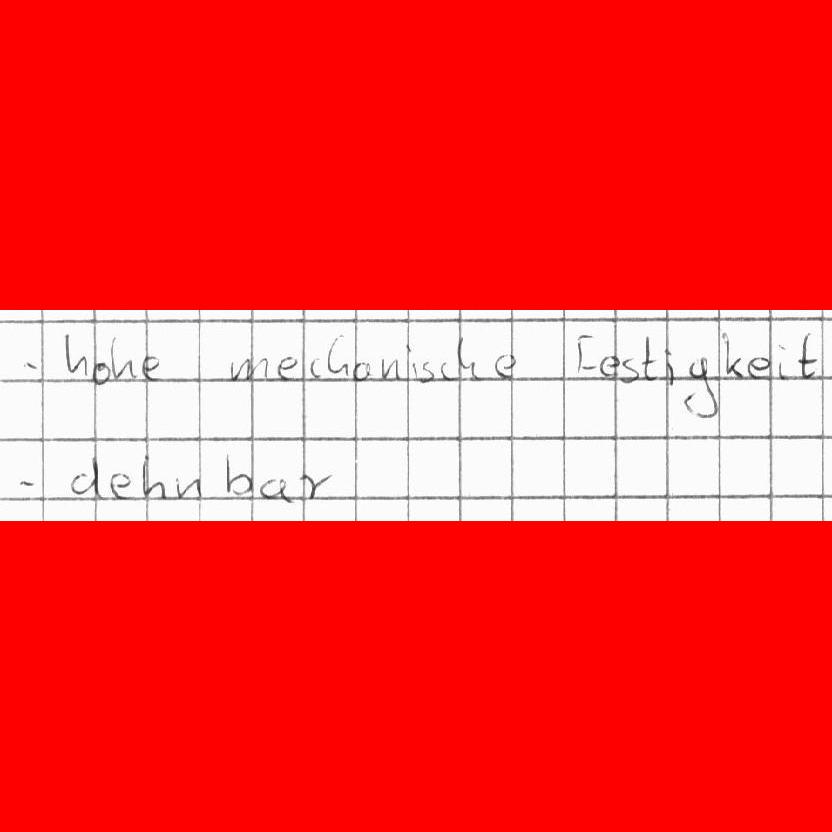 - hohe mechanische Festigkeit
- dehnbar